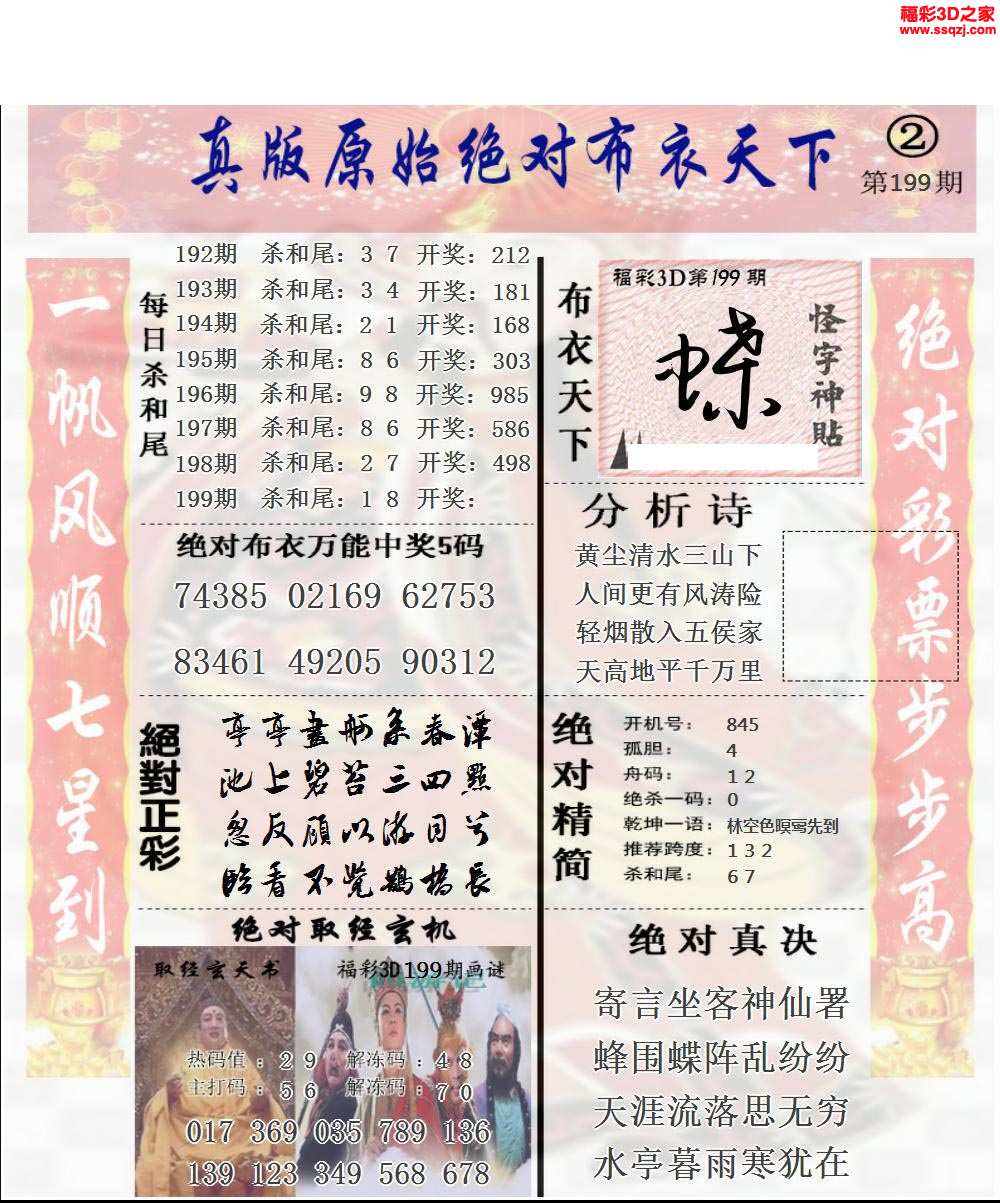 福彩3D之家
www.ssqzj.com
真版原始绝对布衣天下
②
第199期
一帆风顺七星到
每日杀和尾
192期 杀和尾：3 7 开奖：212
193期 杀和尾：3 4 开奖：181
194期 杀和尾：2 1 开奖：168
195期 杀和尾：8 6 开奖：303
196期 杀和尾：9 8 开奖：985
197期 杀和尾：8 6 开奖：586
198期 杀和尾：2 7 开奖：498
199期 杀和尾：1 8 开奖：
绝对布衣万能中奖5码
74385 02169 62753
83461 49205 90312
絕對正彩
亭亭畫舸系春潭
池上碧苔三四點
忽反顾以游目兮
臨看不觉鵲橋長
绝对取经玄机
取经玄天书
福彩3D199期画谜
热码值：2 9 解冻码：4 8
主打码：5 6 解冻码：7 0
017 369 035 789 136
139 123 349 568 678
布衣天下
福彩3D第199期
蝶
怪字神贴
分析诗
黄尘清水三山下
人间更有风涛险
轻烟散入五侯家
天高地平千万里
绝对精简
开机号：845
孤胆：4
舟码：1 2
绝杀一码：0
乾坤一语：林空色暝莺先到
推荐跨度：1 3 2
杀和尾：6 7
绝对真决
寄言坐客神仙署
蜂围蝶阵乱纷纷
天涯流落思无穷
水亭暮雨寒犹在
绝对彩票步步高